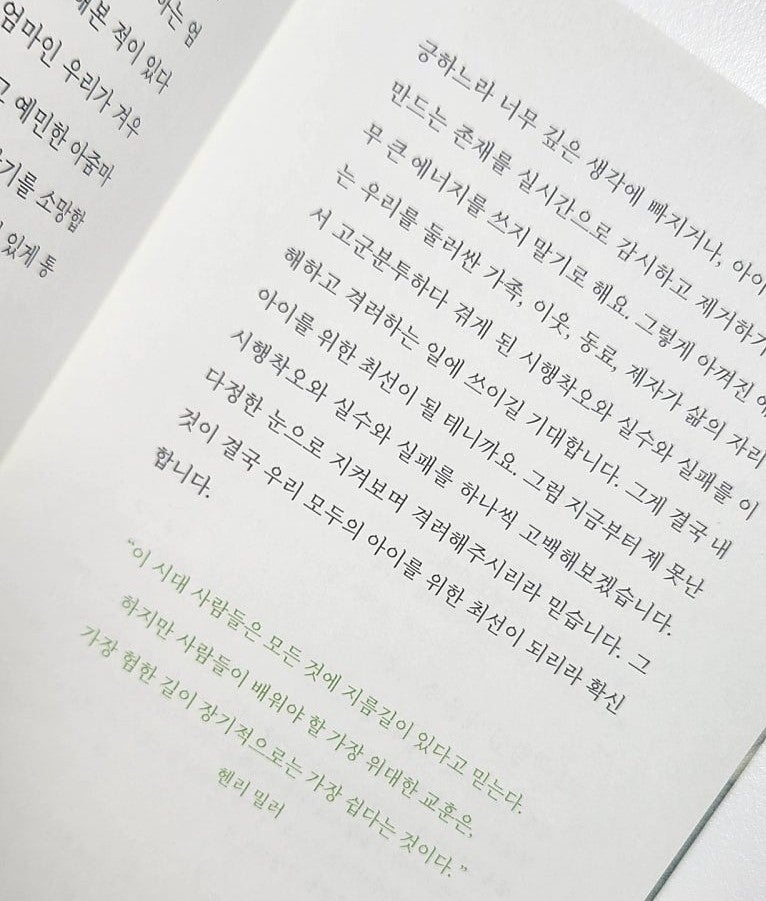 하는 엄
해본 적이 있다
엄마인 우리가 겨우
고 예민한 아줌마
기를 소망합
있게 통
긍하느라 너무 깊은 생각에 빠지거나, 아이
만드는 존재를 실시간으로 감시하고 제거하기
무 큰 에너지를 쓰지 말기로 해요. 그렇게 아껴진
는 우리를 둘러싼 가족, 이웃, 동료, 제자가 삶의 자리
서 고군분투하다 겪게 된 시행착오와 실수와 실패를 이
해하고 격려하는 일에 쓰이길 기대합니다. 그게 결국 내
아이를 위한 최선이 될 테니까요. 그럼 지금부터 제 못난
시행착오와 실수와 실패를 하나씩 고백해보겠습니다.
다정한 눈으로 지켜보며 격려해주시리라 믿습니다. 그
것이 결국 우리 모두의 아이를 위한 최선이 되리라 확신
합니다.
“이 시대 사람들은 모든 것에 지름길이 있다고 믿는다.
하지만 사람들이 배워야 할 가장 위대한 교훈은,
가장 험한 길이 장기적으로는 가장 쉽다는 것이다.”
헨리 밀러